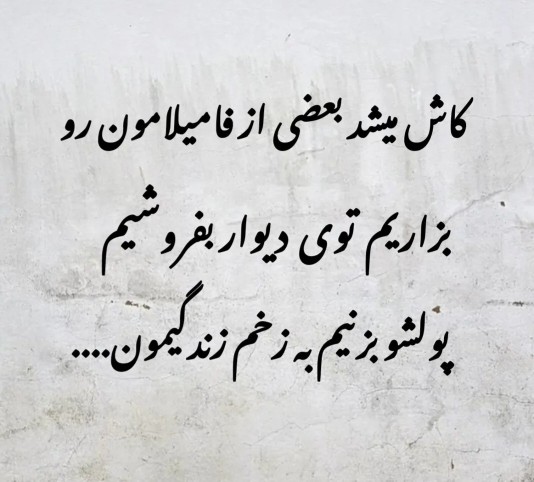 کاش میشد بعضی از فامیلامون رو
بزاریم توی دیوار بفروشیم
پولشو بزنیم به زخم زندگیمون....